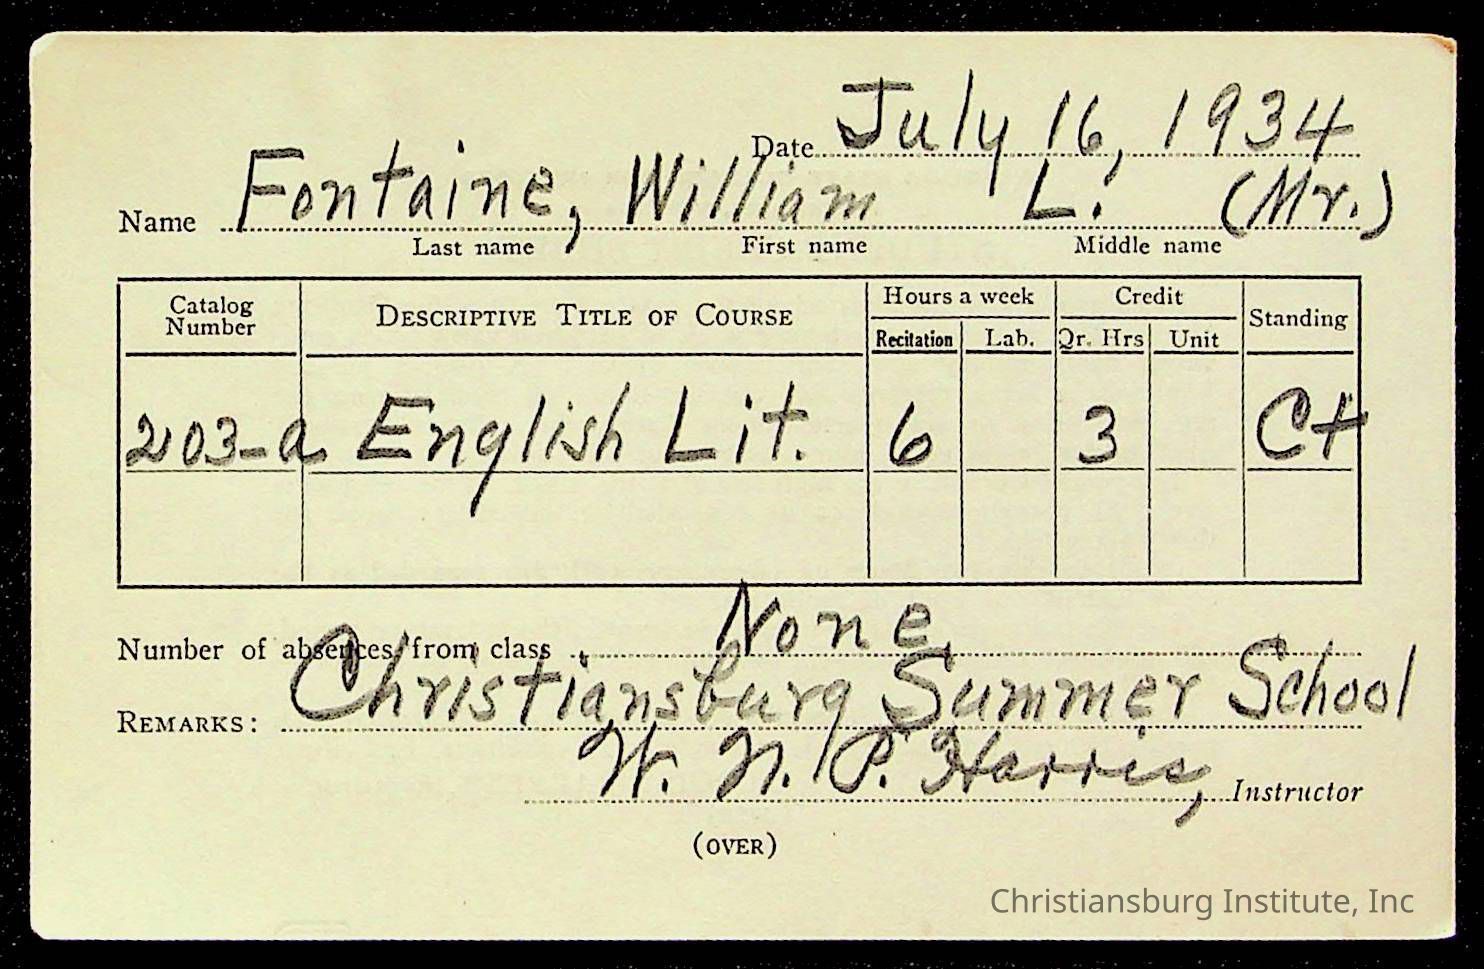 Date July 16, 1934
Name Fontaine, William L. (Mr.)
Last name First name Middle name
Catalog Number DESCRIPTIVE TITLE OF COURSE Hours a week Credit Standing
Recitation Lab. Qr. Hrs Unit
203-a English Lit. 6 3 C+
Number of absences from class None
REMARKS: Christiansburg Summer School
W. N. P. Harris, Instructor
(OVER)
Christiansburg Institute, Inc